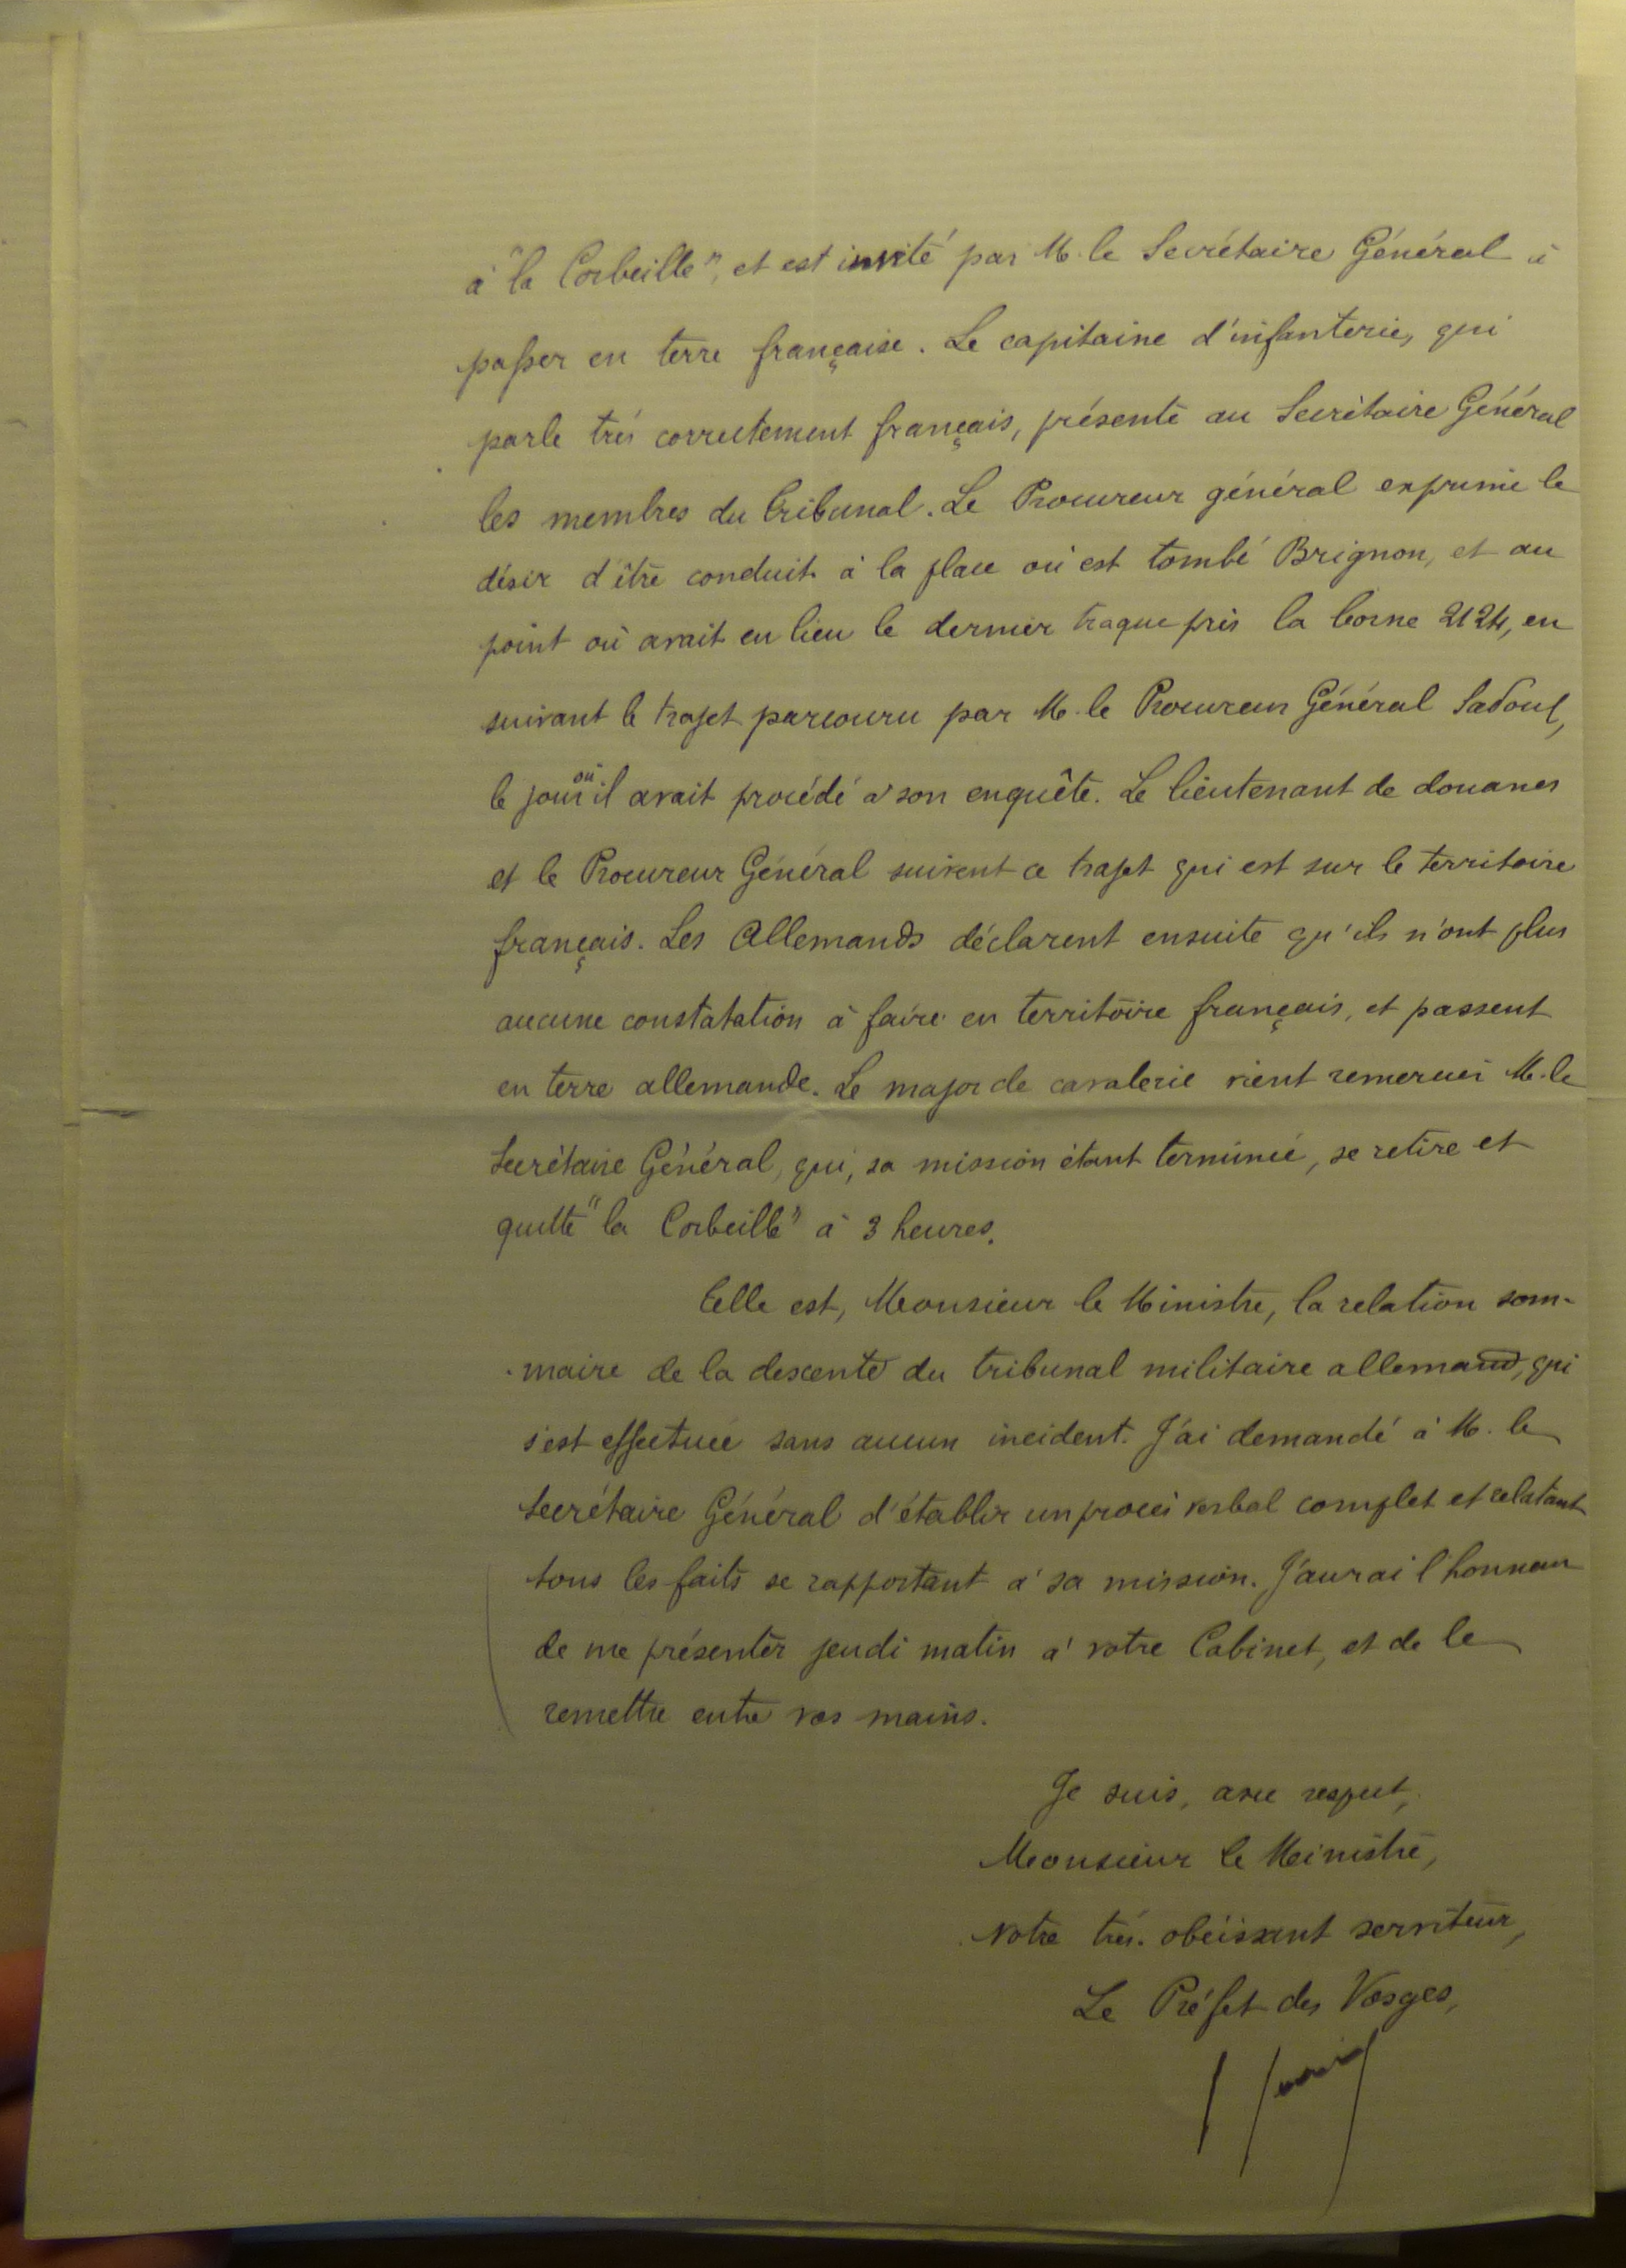 à "la Corbeille", et est invité par M. le Secrétaire Général à
passer en terre française. Le capitaine d'infanterie, qui
parle très correctement français, présente au Secrétaire Général
les membres du Tribunal. Le Procureur général exprime le
désir d'être conduit à la place où est tombé Brignon, et au
point où avait eu lieu le dernier traque près la borne 2124, en
suivant le trajet parcouru par M. le Procureur Général Sadoul,
le jour où il avait procédé à son enquête. Le lieutenant de douanes
et le Procureur Général suivent ce trajet qui est sur le territoire
français. Les Allemands déclarent ensuite qu'ils n'ont plus
aucune constatation à faire en territoire français, et passent
en terre allemande. Le major de cavalerie vient remercier M. le
Secrétaire Général, qui, sa mission étant terminée, se retire et
quitte "la Corbeille" à 3 heures.
Telle est, Monsieur le Ministre, la relation som-
-maire de la descente du tribunal militaire allemand, qui
s'est effectuée sans aucun incident. J'ai demandé à M. le
Secrétaire Général d'établir un procès verbal complet et relatant
tous les faits se rapportant à sa mission. J'aurai l'honneur
de me présenter jeudi matin à votre Cabinet, et de le
remettre entre vos mains.
Je suis, avec respect,
Monsieur le Ministre,
Votre très obéissant serviteur,
Le Préfet des Vosges,